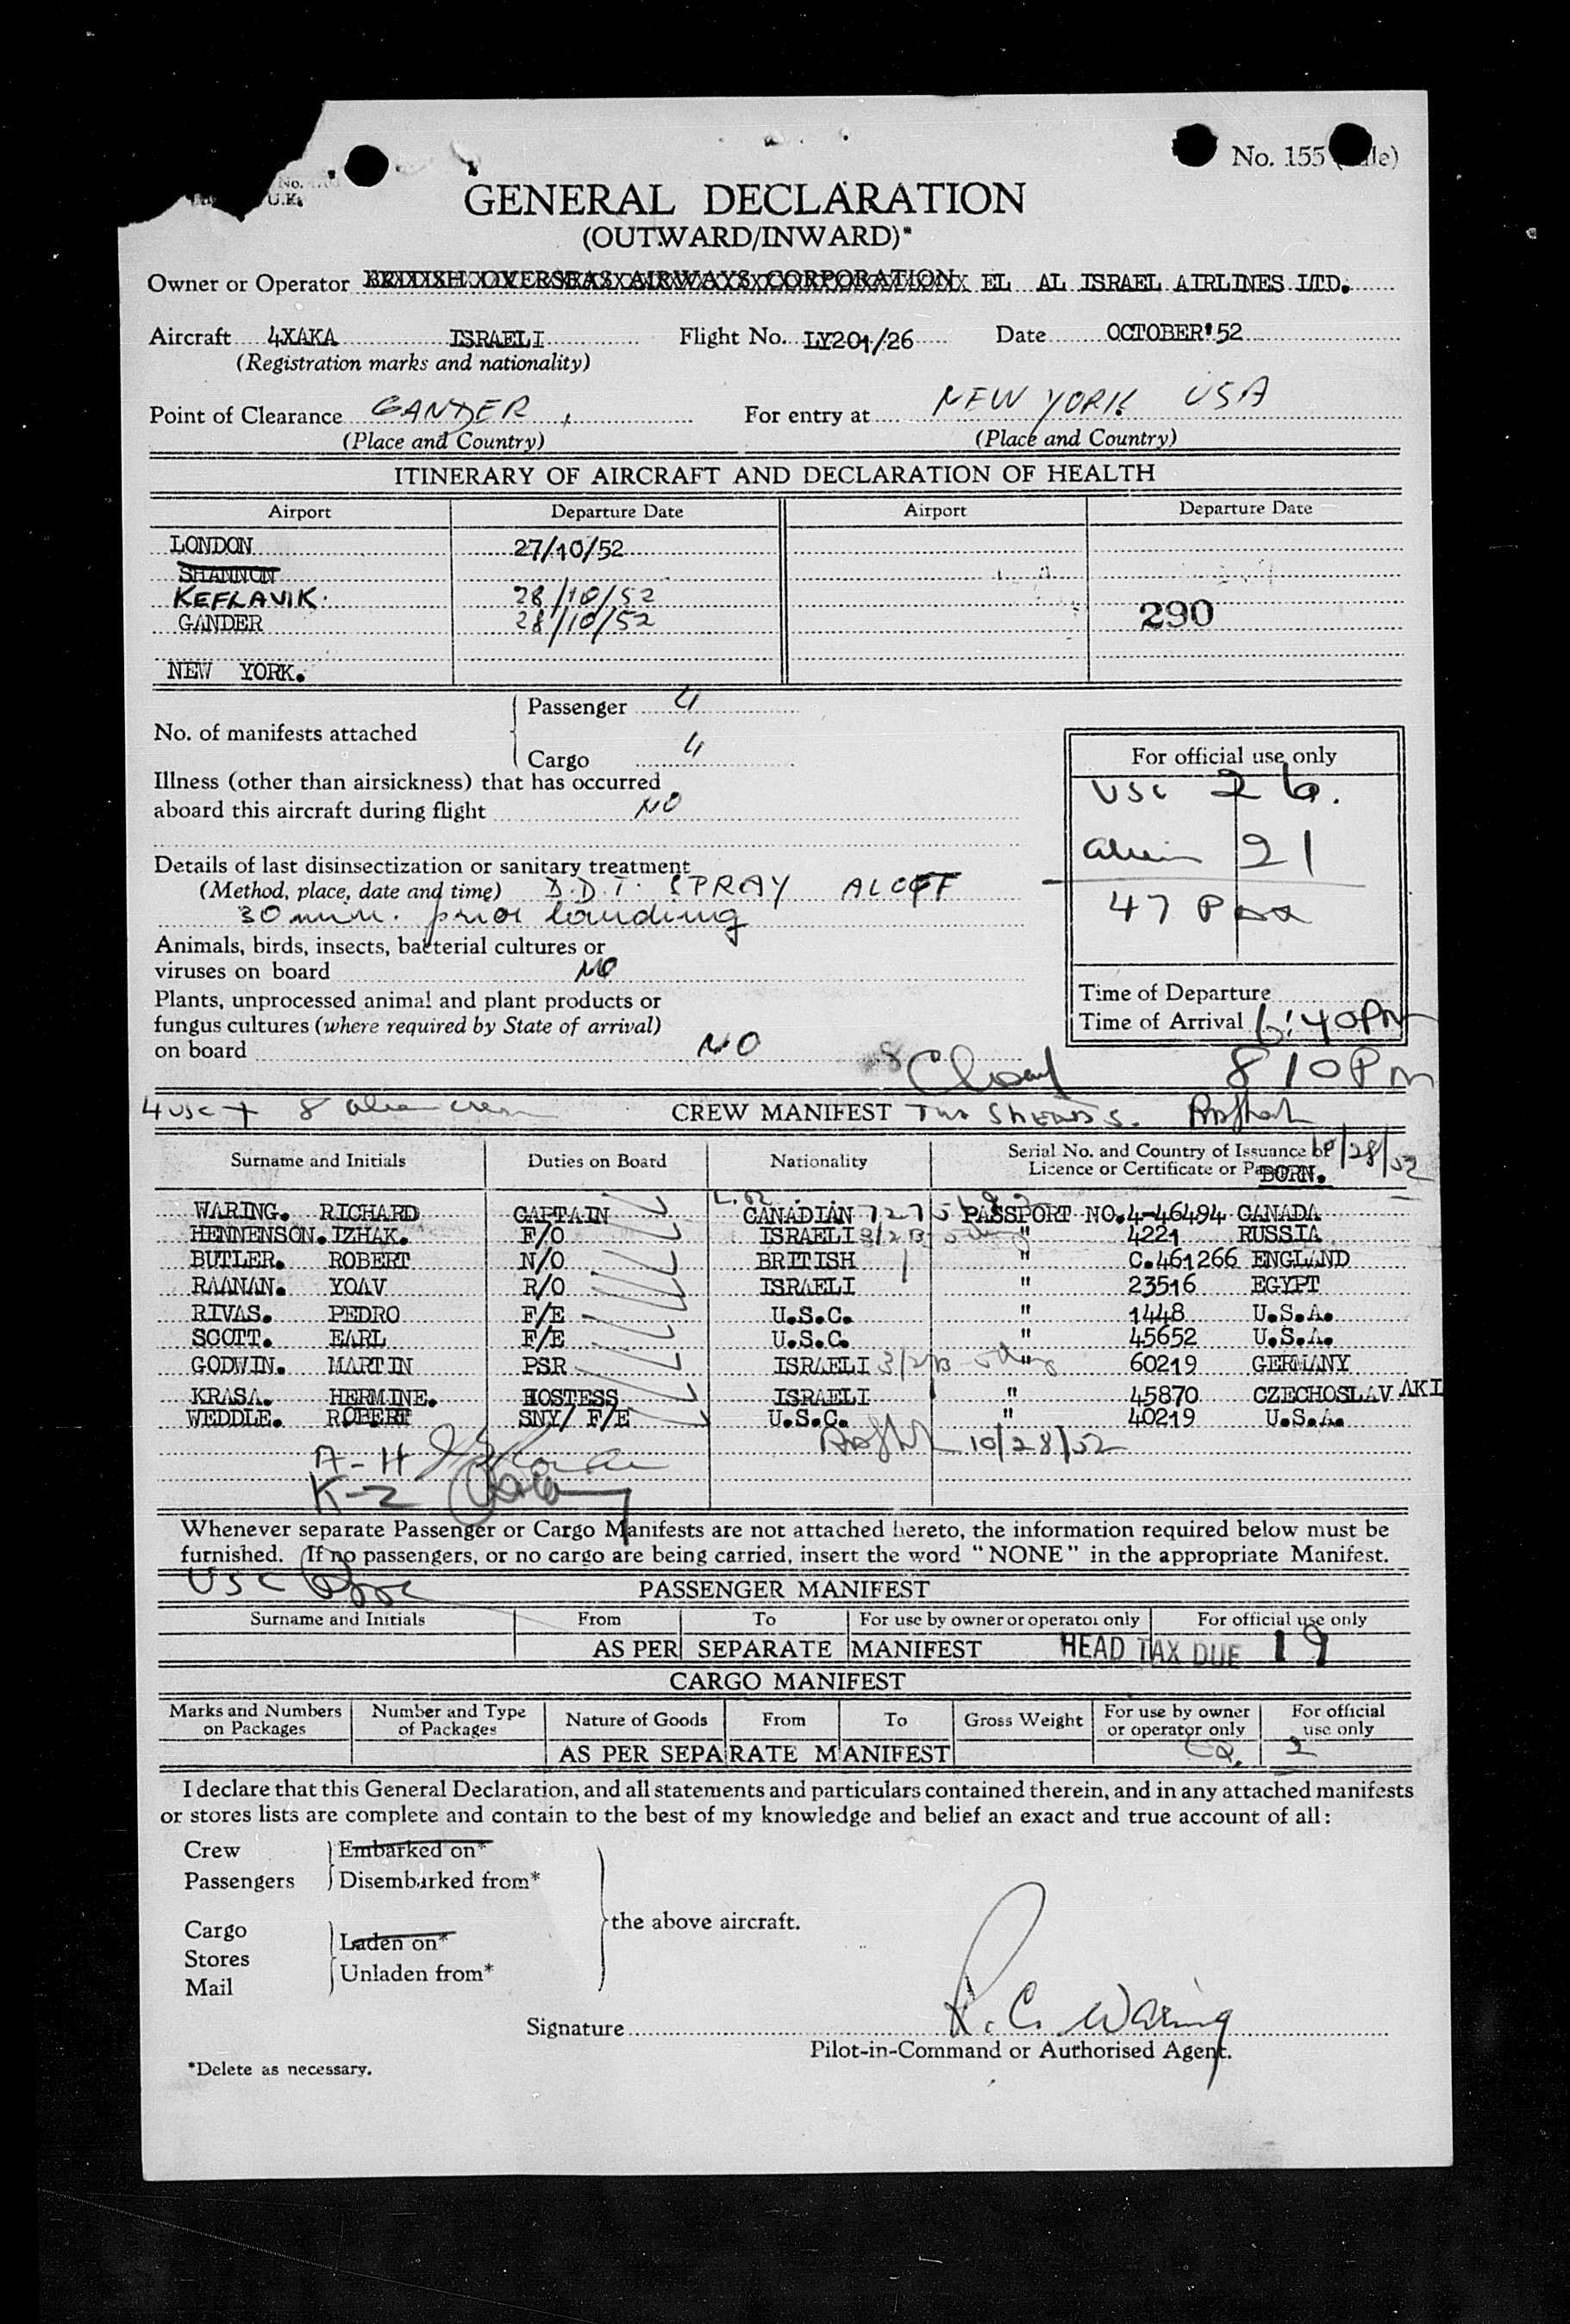 No. 155
No.
U.K.
GENERAL DECLARATION
(OUTWARD/INWARD)*
Owner or Operator BRITISH OVERSEAS AIRWAYS CORPORATION EL AL ISRAEL AIRLINES LTD.
Aircraft 4XAKA ISRAELI Flight No. LY201/26 Date OCTOBER'52
(Registration marks and nationality)
Point of Clearance GANDER, For entry at NEW YORK USA
(Place and Country) (Place and Country)
ITINERARY OF AIRCRAFT AND DECLARATION OF HEALTH
Airport Departure Date Airport Departure Date
LONDON 27/10/52
SHANNON
KEFLAVIK. 28/10/52
GANDER 28/10/52 290
NEW YORK.
No. of manifests attached
Passenger 4
Cargo 4
Illness (other than airsickness) that has occurred
aboard this aircraft during flight NO
Details of last disinsectization or sanitary treatment
(Method, place, date and time) D.D.T. SPRAY ALOFF
30 min. prior landing
Animals, birds, insects, bacterial cultures or
viruses on board NO
Plants, unprocessed animal and plant products or
fungus cultures (where required by State of arrival)
on board NO
For official use only
USC 26.
alien 21
47 Pax
Time of Departure
Time of Arrival 6:40PM
8 10 PM
4 usc + 8 alien crew CREW MANIFEST TWO SHEADS.
Surname and Initials Duties on Board Nationality Serial No. and Country of Issuance of 10/28/52
Licence or Certificate or Pa BORN.
WARING. RICHARD CAPTAIN CANADIAN PASSPORT NO. 4-46494 CANADA
HENNENSON. IZHAK. F/O ISRAELI " 4221 RUSSIA
BUTLER. ROBERT N/O BRITISH " C.461266 ENGLAND
RAANAN. YOAV R/O ISRAELI " 23516 EGYPT
RIVAS. PEDRO F/E U.S.C. " 1448 U.S.A.
SCOTT. EARL F/E U.S.C. " 45652 U.S.A.
GODWIN. MARTIN PSR ISRAELI " 60219 GERMANY
KRASA. HERMINE. HOSTESS ISRAELI " 45870 CZECHOSLAVAKI
WEDDLE. ROBERT SNY/ F/E U.S.C. " 40219 U.S.A.
10/28/52
A-H
K-Z
Whenever separate Passenger or Cargo Manifests are not attached hereto, the information required below must be
furnished. If no passengers, or no cargo are being carried, insert the word "NONE" in the appropriate Manifest.
USC
PASSENGER MANIFEST
Surname and Initials From To For use by owner or operator only For official use only
AS PER SEPARATE MANIFEST HEAD TAX DUE 19
CARGO MANIFEST
Marks and Numbers on Packages Number and Type of Packages Nature of Goods From To Gross Weight For use by owner or operator only For official use only
AS PER SEPARATE MANIFEST 2
I declare that this General Declaration, and all statements and particulars contained therein, and in any attached manifests
or stores lists are complete and contain to the best of my knowledge and belief an exact and true account of all:
Crew Embarked on*
Passengers Disembarked from*
the above aircraft.
Cargo
Laden on*
Stores
Unladen from*
Mail
Signature R. C. Waring
Pilot-in-Command or Authorised Agent.
*Delete as necessary.